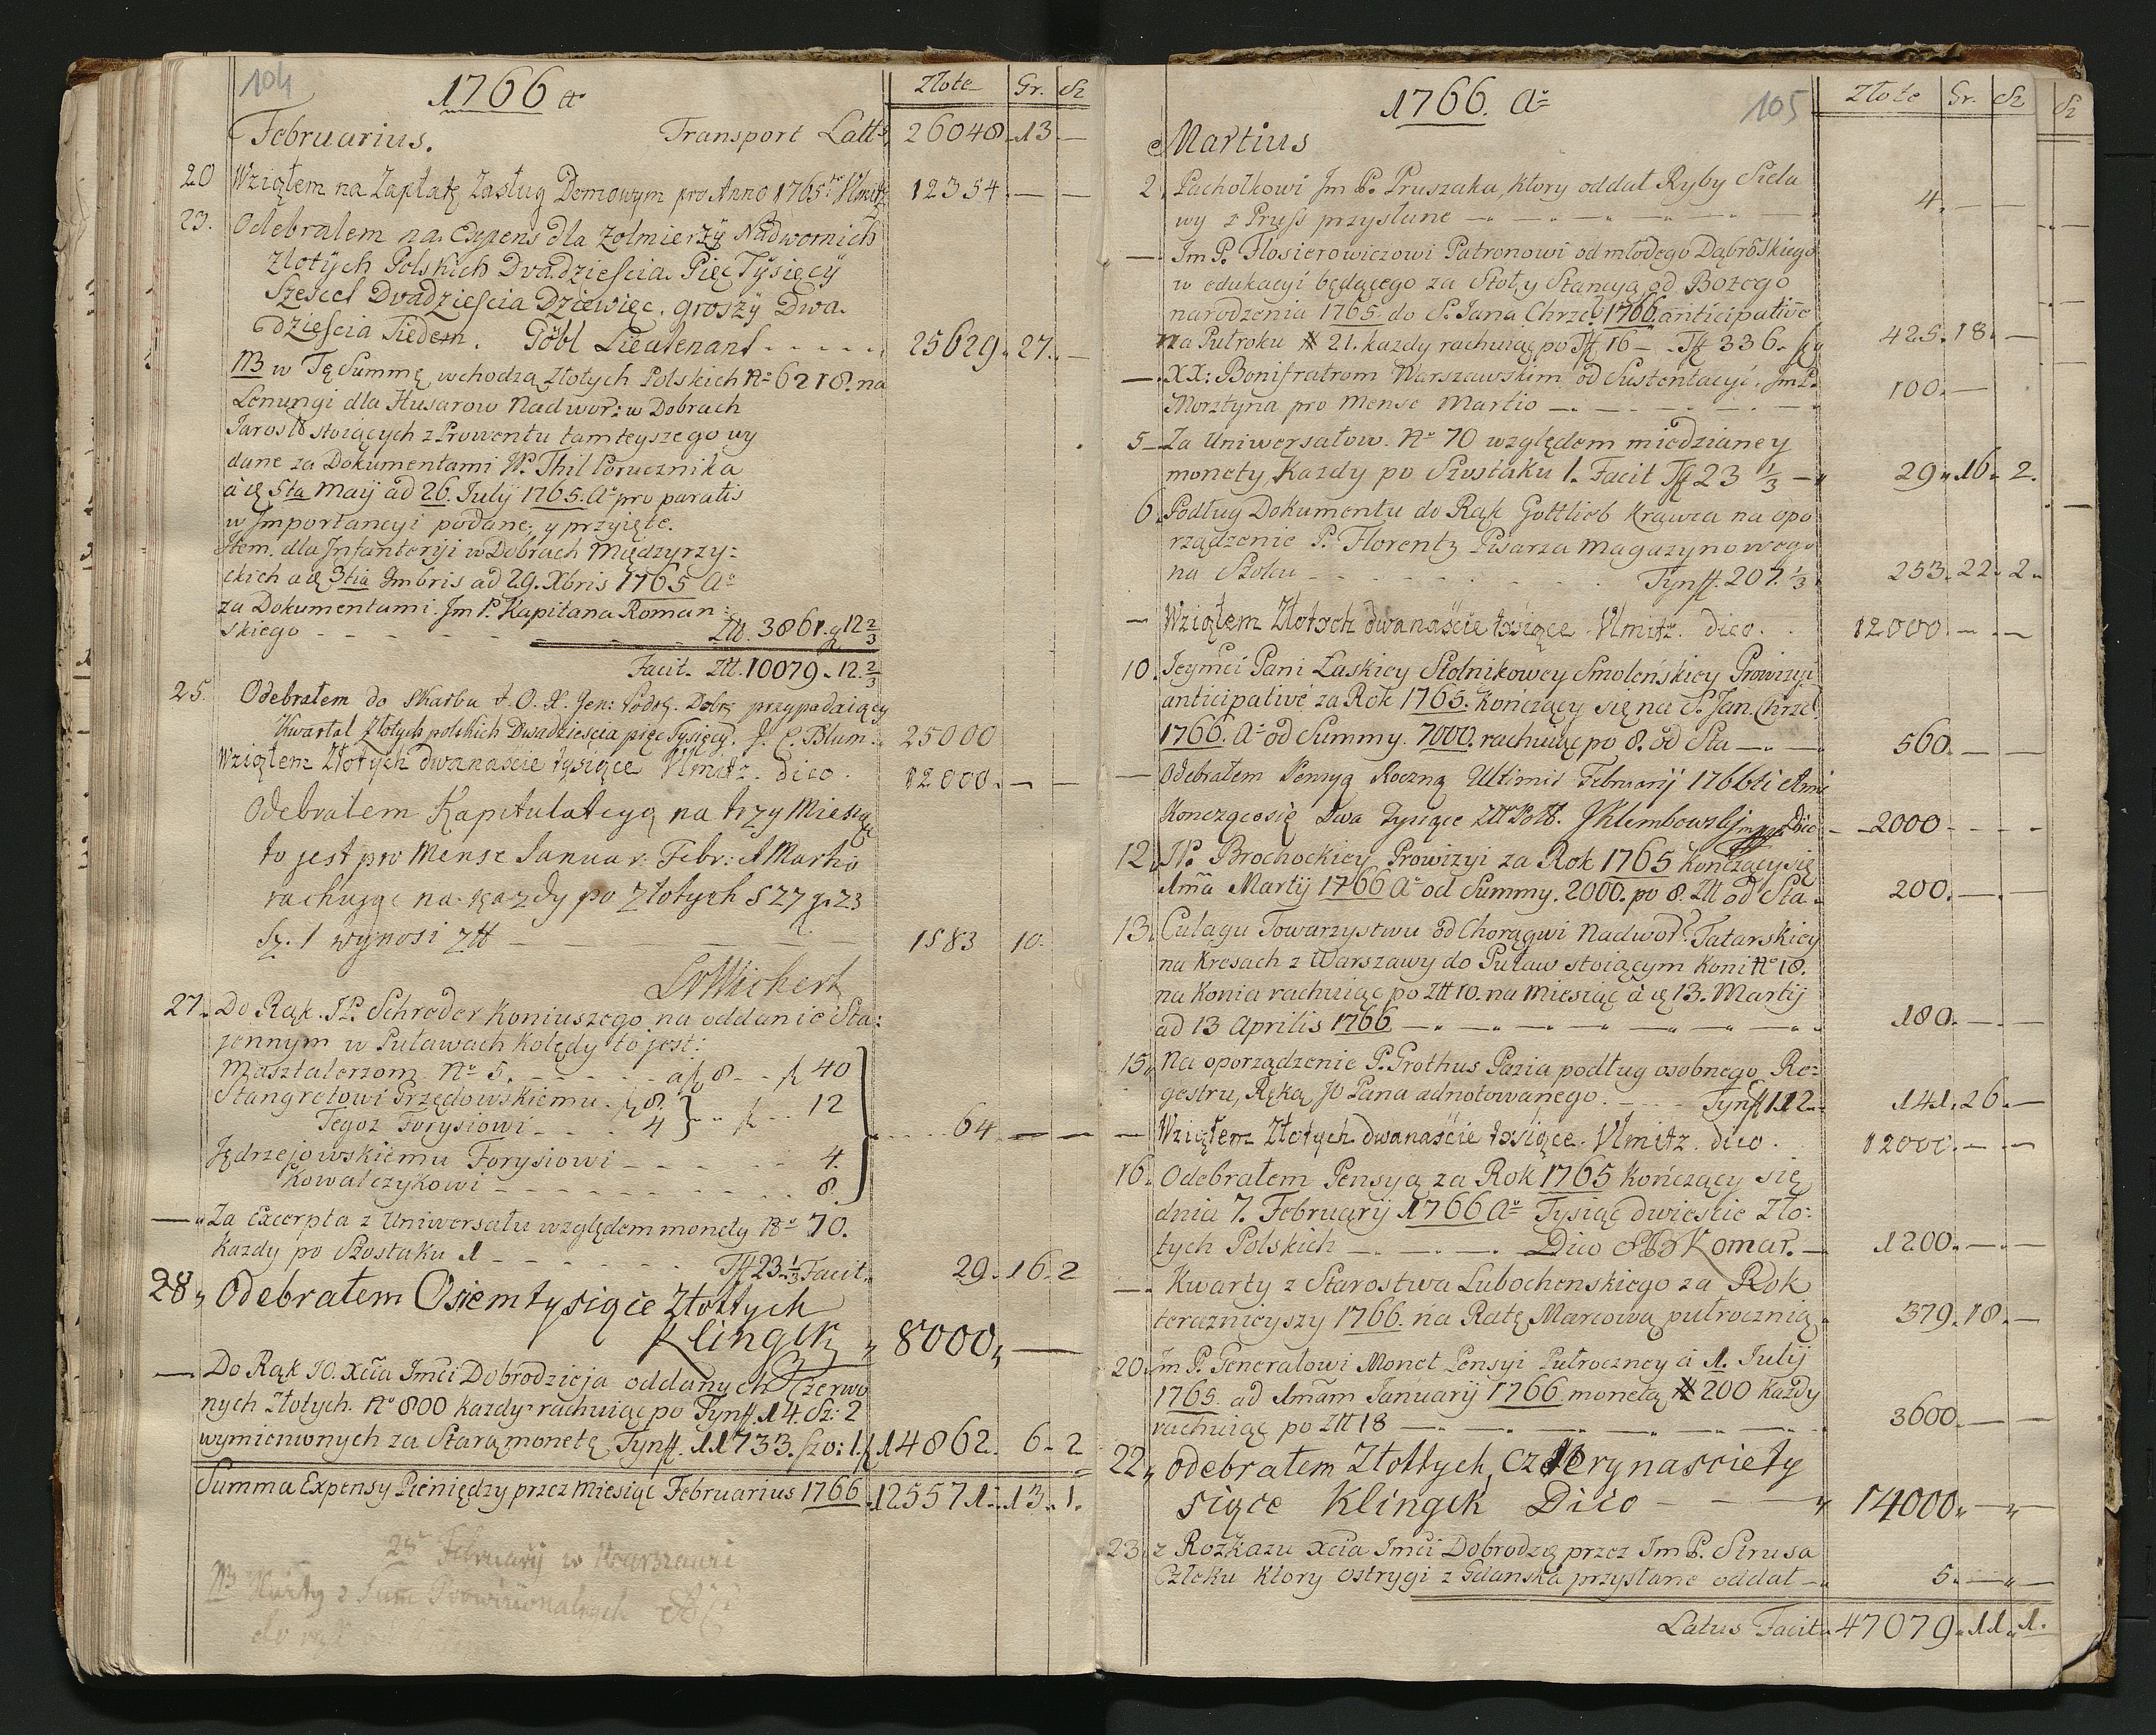 104
1766 a
Złote Gr. Sz
Februarius. Transport Latt: 26048. 13 —
20 Wziąłem na Zapłatę Zasług Domowym pro Anno 1765 Vlmitz 12354. — —
23. Odebrałem na Expens dla Zołmierzÿ Nadwornich
Złotÿch Polskich Dvadzieścia Pięc Tÿsięcÿ
Szescet Dvadzieścia Dziewięc. groszÿ Dwa
dzieścia Siedem. Göbl Lieutenant - - - - - 25629. 27. —
NB w Tę Summę wchodzą Złotych Polskich No 6218. na
Lenungi dla Husarow Nadwor: w Dobrach
Jarosł: stoiących z Prowentu tamteyszego wy
dane za Dokumentami W. Thil Porucznika
à 5ta Maÿ ad 26. Julÿ 1765. Ao pro paratis
w Importancyi podane, y przyięte.
Item. dla Infanteryi w Dobrach Międzyrzy:
ckich a 3tia 9mbris ad 29. Xbris 1765 Ao
za Dokumentami. Jm P. Kapitana Roman:
skiego - - - - - Ztt. 3861. g 12 2/3
Facit. Ztt. 10079 . 12. 2/3
25. Odebrałem do Skarbu J. O. X. Jen: Podol. Dobr przypadaiący
Kwartał Złotych polskich Dwadzieścia pięc Tysięcy. J. C. Blum. 25000
Wziąłem Złotych dwanaście tysiące Vlmitz. dico. 12000. — —
Odebrałem Kapitulatcyą na trzy Miesiące
to jest pro Mense Januar: Febr: et Martio
rachując na każdy po Złotych 527 g. 23
Sz. 1 wynosi Ztt — — — — 1583 10.
Wichert
27. Do Rąk. JP. Schreder Koniuszego na oddanie Sta:
jennym w Puławach Kolędy to jest:
Masztalerzom No 5. - - - - - - a 8 - - 40
Stangretowi Grzędowskiemu. 8. } - - 12
Tegoz Forysiowi - - - - 4
- - - - 64. — —
Jędrzejowskiemu Forysiowi - - - - - - 4.
Kowalczykowi - - - - - - - - - - 8.
— Za Excerpta z Uniwersału względem monety No 70.
Każdy po Szostaku 1 - - - - - - - Tff 23 1/3 Facit. 29. 16. 2
28 Odebrałem Osiem tysiące Złottych
Klingck 8000. —
— Do Rąk JO. Xcia Jmci Dobrodzieja oddanych Czerwo
nych Złotych. No 800 każdy rachuiąc po Tynff. 14. Sz: 2
wymienionych za Starą monetę Tynff. 11733. szo: 1. 14862. 6. 2
Summa Expensy Pieniędzy przez Miesiąc Februarius 1766 125571. 13. 1.
28 Februarÿ w Warszawie
NB

105
1766. Ao
Złote Gr. Sz
Sz
Martius
2. Pachołkowi Jm P. Pruszaka, ktory oddał Ryby Siela
wy z Pruss przysłane — - — - — 4. — —
— Jm P. Flosierowiczowi Patronowi od młodego Dąbrowskiego
w edukacyi będącego za Stoł, y Stancyą od Bożego
narodzenia 1765. do S. Jana Chrzc: 1766. anticipativè
na Puł roku # 21. każdy rachuiąc po Tff 16 — Tff 336. 425. 18. —
— XX: Bonifratrom Warszawskim od Sustentacyi Jm P.
Morsztyna pro Mense Martio — - — - — 100. —
5 — Za Uniwersałow. No 70 względem miedzianey
monety, Każdy po Szostaku 1. Facit Tff 23 1/3 — 29. 16. 2.
6. Podług Dokumentu do Rąk Gottlieb Krawca na opo
rządzenie P. Florentz Pisarza magazynowego
na Szolcu - - - - - - Tynff. 207. 1/3 253. 22. 2.
— Wziąłem Złotych dwanaście tysiące. Vlmitz. dico. 12000. — —
10. Jeymci Pani Łaskiey Stolnikowey Smoleńskiey Prowizyi
anticipativè za Rok 1765. Kończący się na S. Jan. Chrzc
1766. Ao od Summy. 7000. rachuiąc po 8. od Sta — 560. — —
— Odebrałem Pensyą Roczną Ultimis Februarij 1766ti Anni
Konczącosię Dwa Tysiące Ztt Poll. JKlembowskj mpp Dico — 2000 - - -
12. JP. Brochockiey Prowizyi za Rok 1765 kończący się
1ma Martij 1766 Ao od Summy. 2000. po 8. Ztt od Sta. 200. — —
13. Culagu Towarzystwu od Chorągwi Nadwor: Tatarskiey
na Kresach z Warszawy do Puław stoiącym Koni No 18.
na Konia rachuiąc po Ztt 10. na Miesiąc à 13. Martij
ad 13 Aprilis 1766 — - — - — 180. — —
15. Na oporządzenie P. Grothus Pazia podług osobnego Re:
gestru, Ręką JO Pana adnotowanego. - - - Tynff 112. 141. 26. —
— Wziąłem Złotych dwanaście tysiące. Vlmitz. dico. 12000. — —
16. Odebrałem Pensyą za Rok 1765 kończący się
dnia 7. Februarij 1766 Ao Tysiąc dwieście Zło:
tych Polskich — - — Dico Komar. — 1200. — —
— Kwarty z Starostwa Lubochenskiego za Rok
teraznieyszy 1766. na Ratę Marcową pułrocznią. 379. 18. —
20. Jm P. Generałowi Monet Pensyi Pułroczney à 1. Julij
1765. ad 1mam Januarij 1766 monetą # 200 każdy
rachuiąc po Ztt 18 — - — - — 3600. — —
22. Odebrałem Złottych, czterynasciety
siące Klingck Dico — — — 14000. —
23. z Rozkazu Xcia Jmci Dobrodz: przez Jm P. Sirusa
Człeku ktory Ostrygi z Gdanska przysłane oddał — 5. — —
Latus Facit 47079. 11. 1.